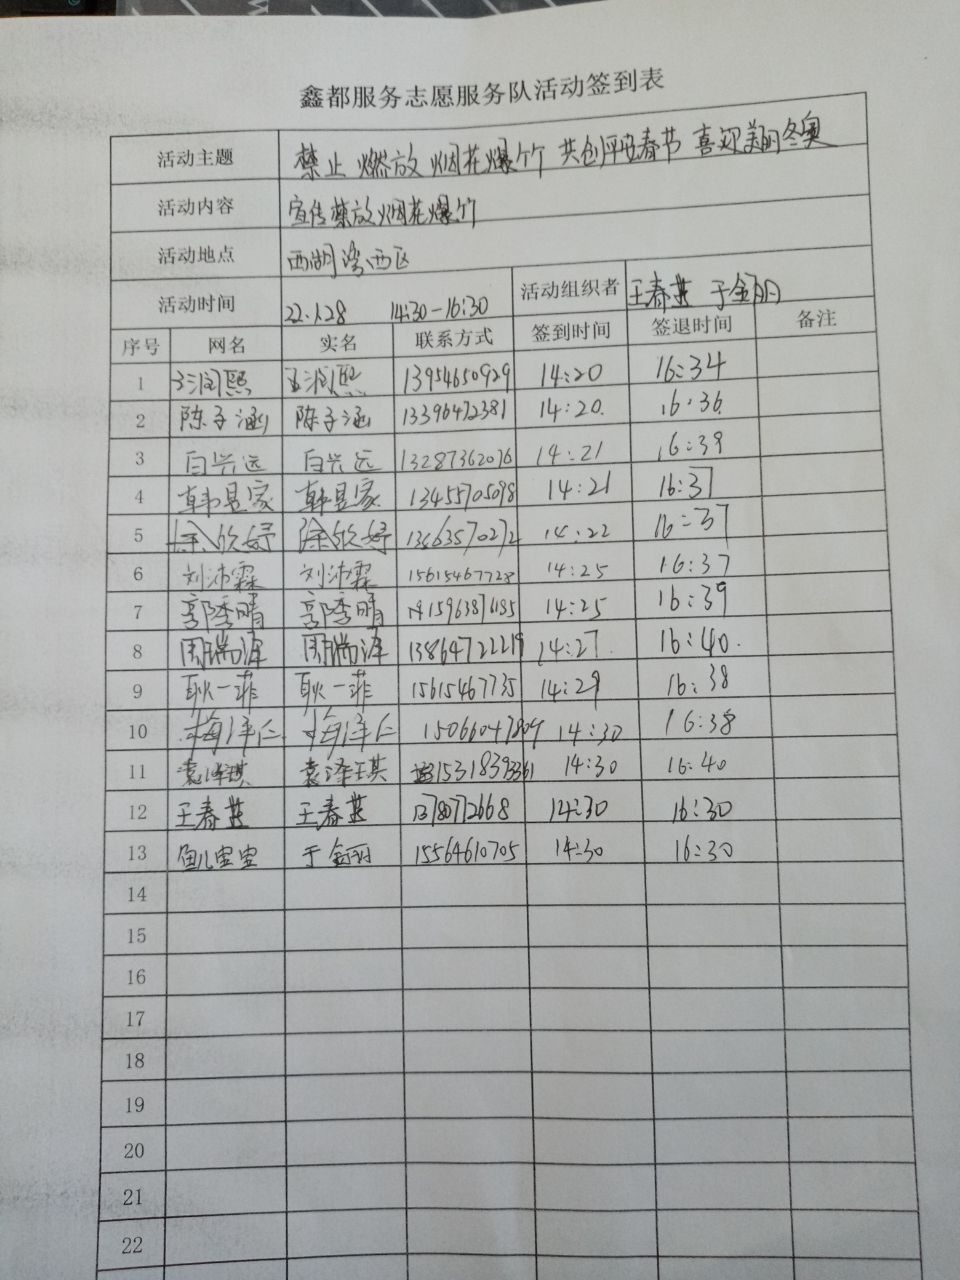 鑫都服务志愿服务队活动签到表
活动主题 禁止燃放烟花爆竹 共创平安春节 喜迎美丽冬奥
活动内容 宣传禁放烟花爆竹
活动地点 西湖湾西区
活动时间 22.1.28 14:30-16:30 活动组织者 王春燕 于金丽
序号 网名 实名 联系方式 签到时间 签退时间 备注
1 王润熙 王润熙 13954650929 14:20 16:34
2 陈子涵 陈子涵 13396472381 14:20 16:36
3 白兴远 白兴远 13287362076 14:21 16:39
4 韩昱家 韩昱家 13455705098 14:21 16:37
5 徐欣妤 徐欣妤 14:22 16:37
6 刘沛霖 刘沛霖 15615467728 14:25 16:37
7 郭季晴 郭季晴 14:25 16:39
8 周瑞泽 周瑞泽 13864722219 14:27 16:40
9 耿一菲 耿一菲 15615467735 14:29 16:38
10 梅泽仁 梅泽仁 14:30 16:38
11 袁泽琪 袁泽琪 14:30 16:40
12 王春燕 王春燕 13780772668 14:30 16:30
13 鱼儿宝宝 于金丽 15564610705 14:30 16:30
14
15
16
17
18
19
20
21
22